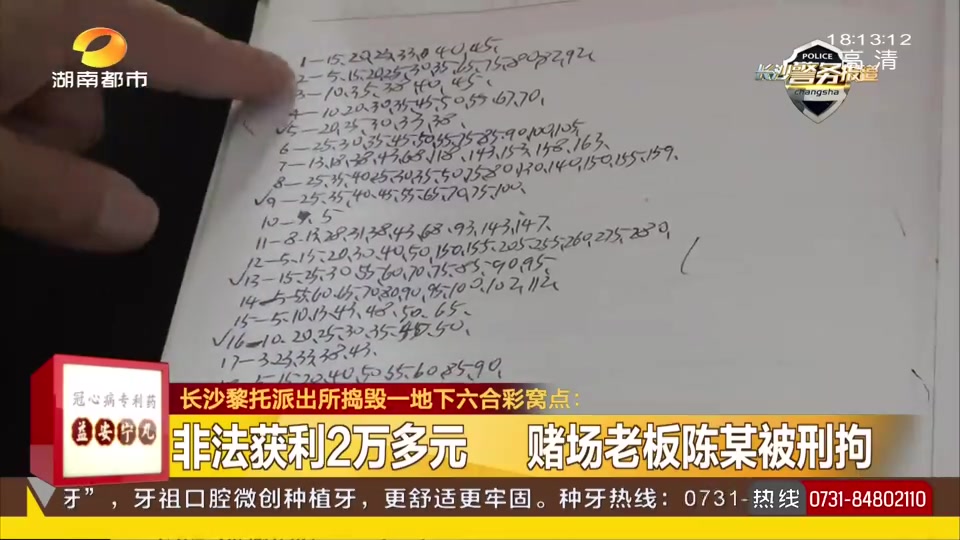 18:13:12
湖南都市
高清
POLICE
长沙警务报道
changsha
1—15.20.25.33.40.45.
2—5.15.20.25.30.35.65.75.80.82.92.
3—10.35.38.40.45.
4—10.20.30.35.45.50.55.67.70.
√5—20.25.30.33.38.
6—25.30.35.45.50.55.75.85.90.100.105.
7—13.18.38.43.68.118.143.153.158.163.
8—25.35.40.25.30.35.50.75.80.130.140.150.155.159.
√9—25.35.40.45.55.65.70.75.100.
10—5
11—8.13.28.31.38.43.68.93.143.147.
12—5.15.20.30.40.50.150.155.205.255.260.275.
√13—15.25.30.55.60.70.75.85.90.95.
14—5.55.60.65.70.80.90.95.100.102.112.
15—5.10.13.43.48.50.65.
√16—10.20.25.30.35.45.50.
17—3.23.33.38.43.
5.15.20.40.50.55.60.85.90.
冠心病专利药
益安宁丸
长沙黎托派出所捣毁一地下六合彩窝点：
非法获利2万多元 赌场老板陈某被刑拘
牙”，牙祖口腔微创种植牙，更舒适更牢固。种牙热线：0731-
热线 0731-84802110